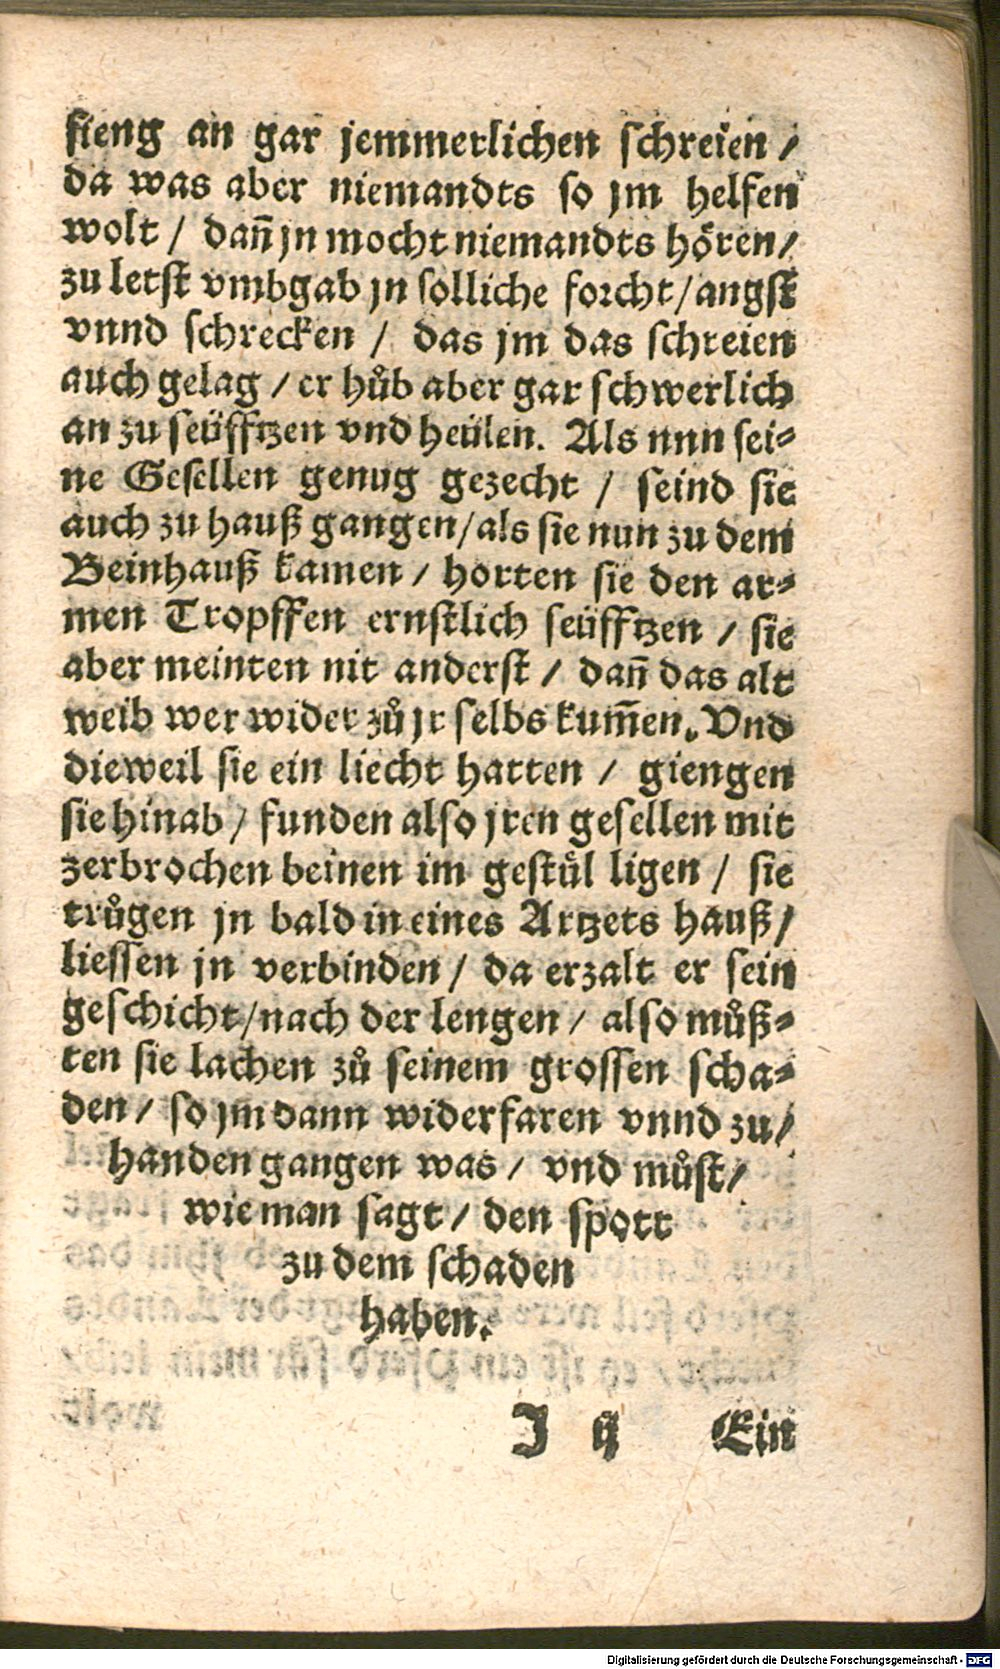 fieng an gar jemmerlichen schreien /
da was aber niemandts so jm helfen
wolt / dañ jn mocht niemandts hören /
zu letst vmbgab jn solliche forcht / angst
vnnd schrecken / das jm das schreien
auch gelag / er hůb aber gar schwerlich
an zu seüfftzen vnd heülen. Als nun sei⸗
ne Gesellen genug gezecht / seind sie
auch zu hauß gangen / als sie nun zu dem
Beinhauß kamen / horten sie den ar⸗
men Tropffen ernstlich seüfftzen / sie
aber meinten nit anderst / dañ das alt
weib wer wider zů jr selbs kum̃en. Vnd
dieweil sie ein liecht hatten / giengen
sie hinab / funden also jren gesellen mit
zerbrochen beinen im gestůl ligen / sie
trůgen jn bald in eines Artzets hauß /
liessen jn verbinden / da erzalt er sein
geschicht / nach der lengen / also můß⸗
ten sie lachen zů seinem grossen scha⸗
den / so jm dann widerfaren vnnd zu /
handen gangen was / vnd můst /
wie man sagt / den spott
zu dem schaden
haben.
J ij Ein
Digitalisierung gefördert durch die Deutsche Forschungsgemeinschaft - DFG